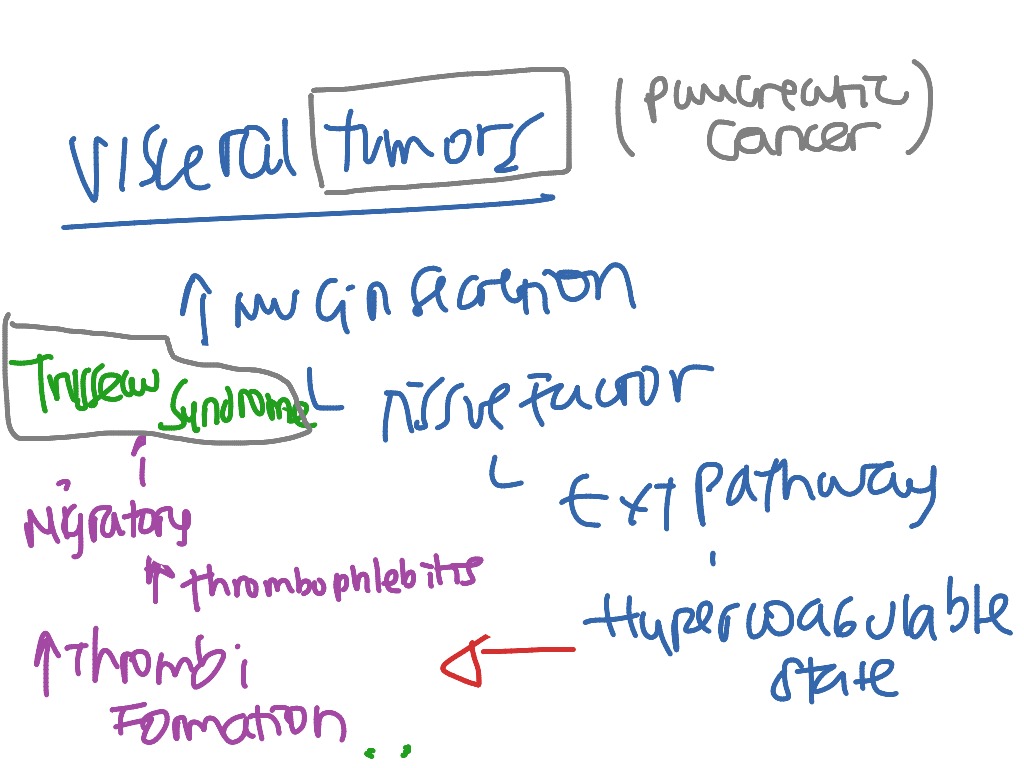 visceral tumors
(pancreatic
cancer)
↑ mucin secretion
Trusseau
Syndrome
tissue factor
Ext pathway
Migratory
↑ thrombophlebitis
Hypercoagulable
state
↑ Thrombi
Formation